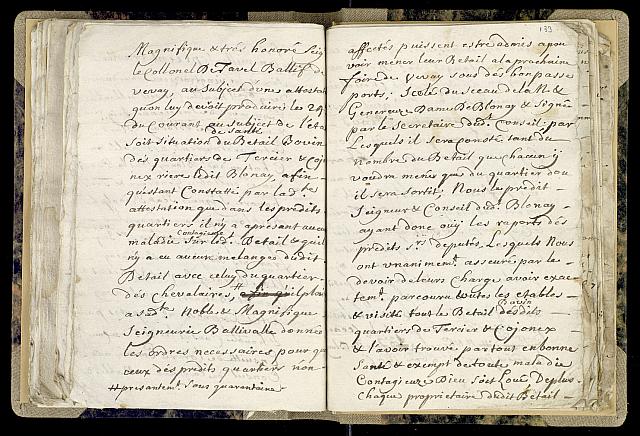 Magnifique & trés honoré Seig
le Collonel De Tavel Ballif de
vevay, au Subject d'une attestat
qu'on luy devoit produire le 24e
du Courant, au Subject de l'Eta
de Santé
Soit Situation du Betail Bovin
des quartiers de Tercier & Cojo
nex riere ledit Blonay, afin
qu'estant Constatté par lad. te
attestation que dans les predits
quartiers il n'y a apresant aucu
Contagieuse
maladie Sur led. Betail & qu'il
n'y a eu aucun melange dudit
Betail avec celuy du quartier
des Chevalaires, # il plai
a Sad. te Noble & Magnifique
Seigneurie Ballivalle donner
les ordres necessaires pour qu
ceux des predits quartiers non
# presantem.t Sous quarentaine
139
affectés puissent estre admis a pou
voir mener leur Betail a la prochaine
foire de Vevay sous des bon passe
ports, du Sceau de la M. &
Genereuse Dame De Blonay & Signé
par le Secretaire dud. Conseil; par
Lesquels il sera Consté tant du
nombre du Betail que chacun y
voudra mener que du quartier dou
il sera Sortit, Nous le predit
Seigneur & Conseil dud. Blonay
ayant donc ouy les raports des
predits S.rs deputés, Lesquels Nous
ont unanimem.t asseuré par le
devoir de leurs Charge avoir exac
tem.t parcouru toutes les etables
Bovin
& visité tout le Betail desdits
quartiers de Tercier & Cojonex
& l'avoir trouvé par tout en bonne
Santé & exempt de toute maladie
Contagieuse Dieu Soit Loué, De plus
Chaque proprietaire dudit Betail